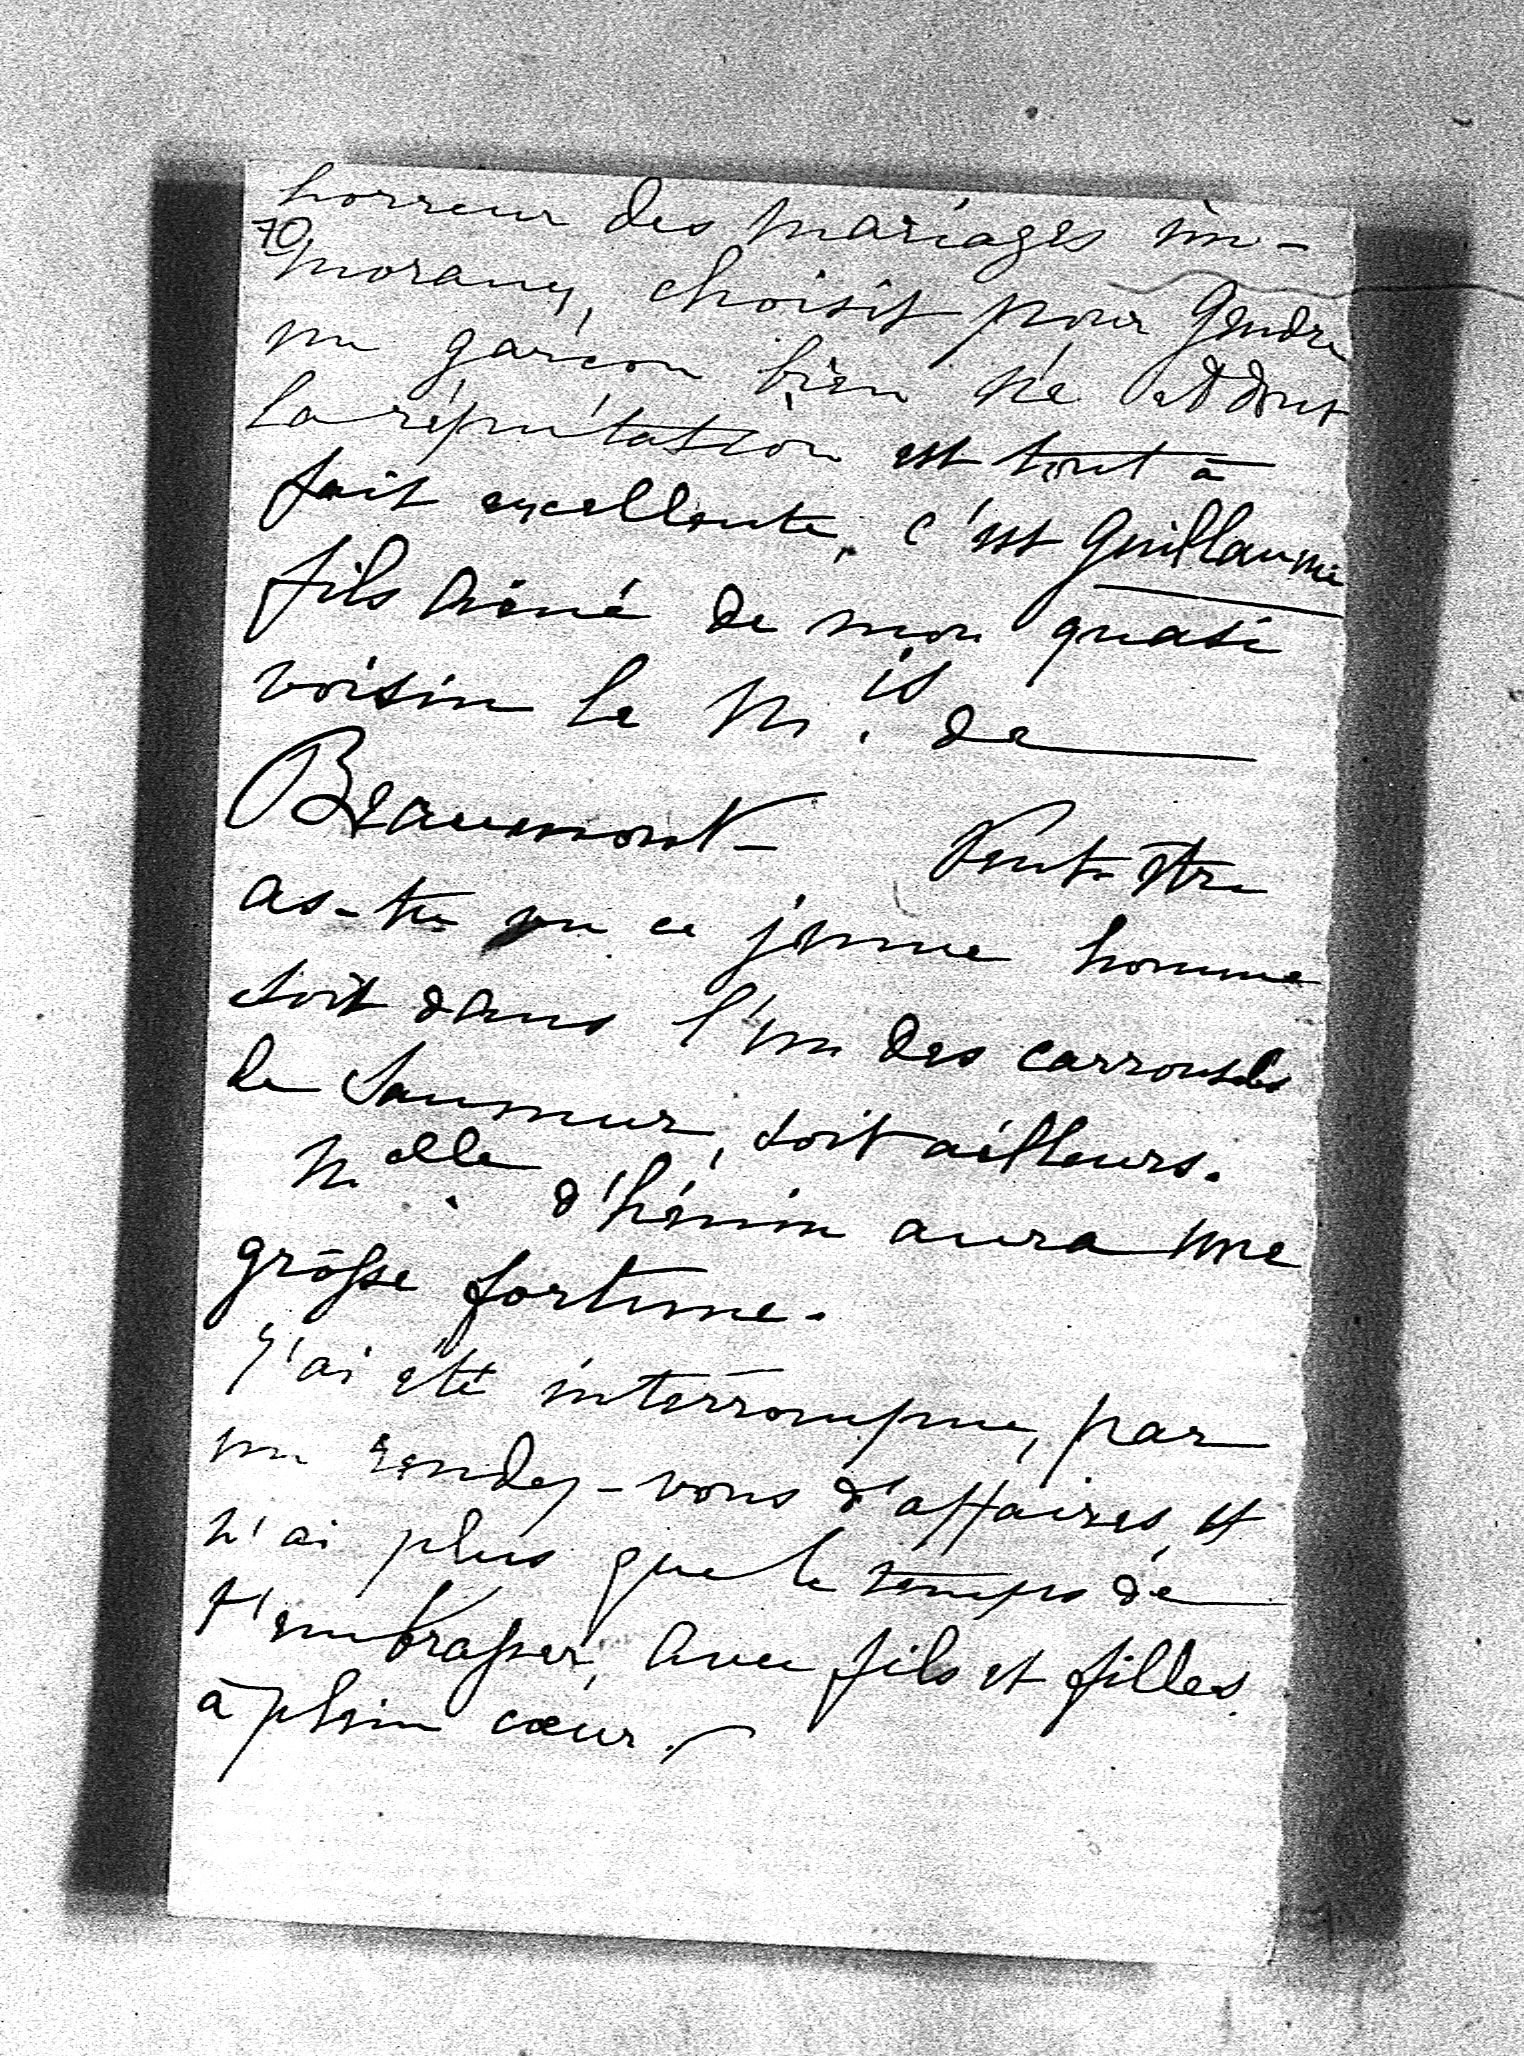 horreur des mariages im-
70
moraux, choisit pour gendre
un garçon bien né et dont
la réputation est tout à
fait excellente, c'est Guillaume
fils aîné de mon quasi
voisin le M.is de
Beaumont - Peut-être
as-tu vu ce jeune homme
soit dans l'un des carrousels
de Saumur, soit ailleurs.
M.elle d'hénin aura une
grosse fortune.
J'ai été interrompue, par
un rendez-vous d'affaires, et
n'ai plus que le temps de
t'embrasser, avec fils et filles.
à plein cœur.